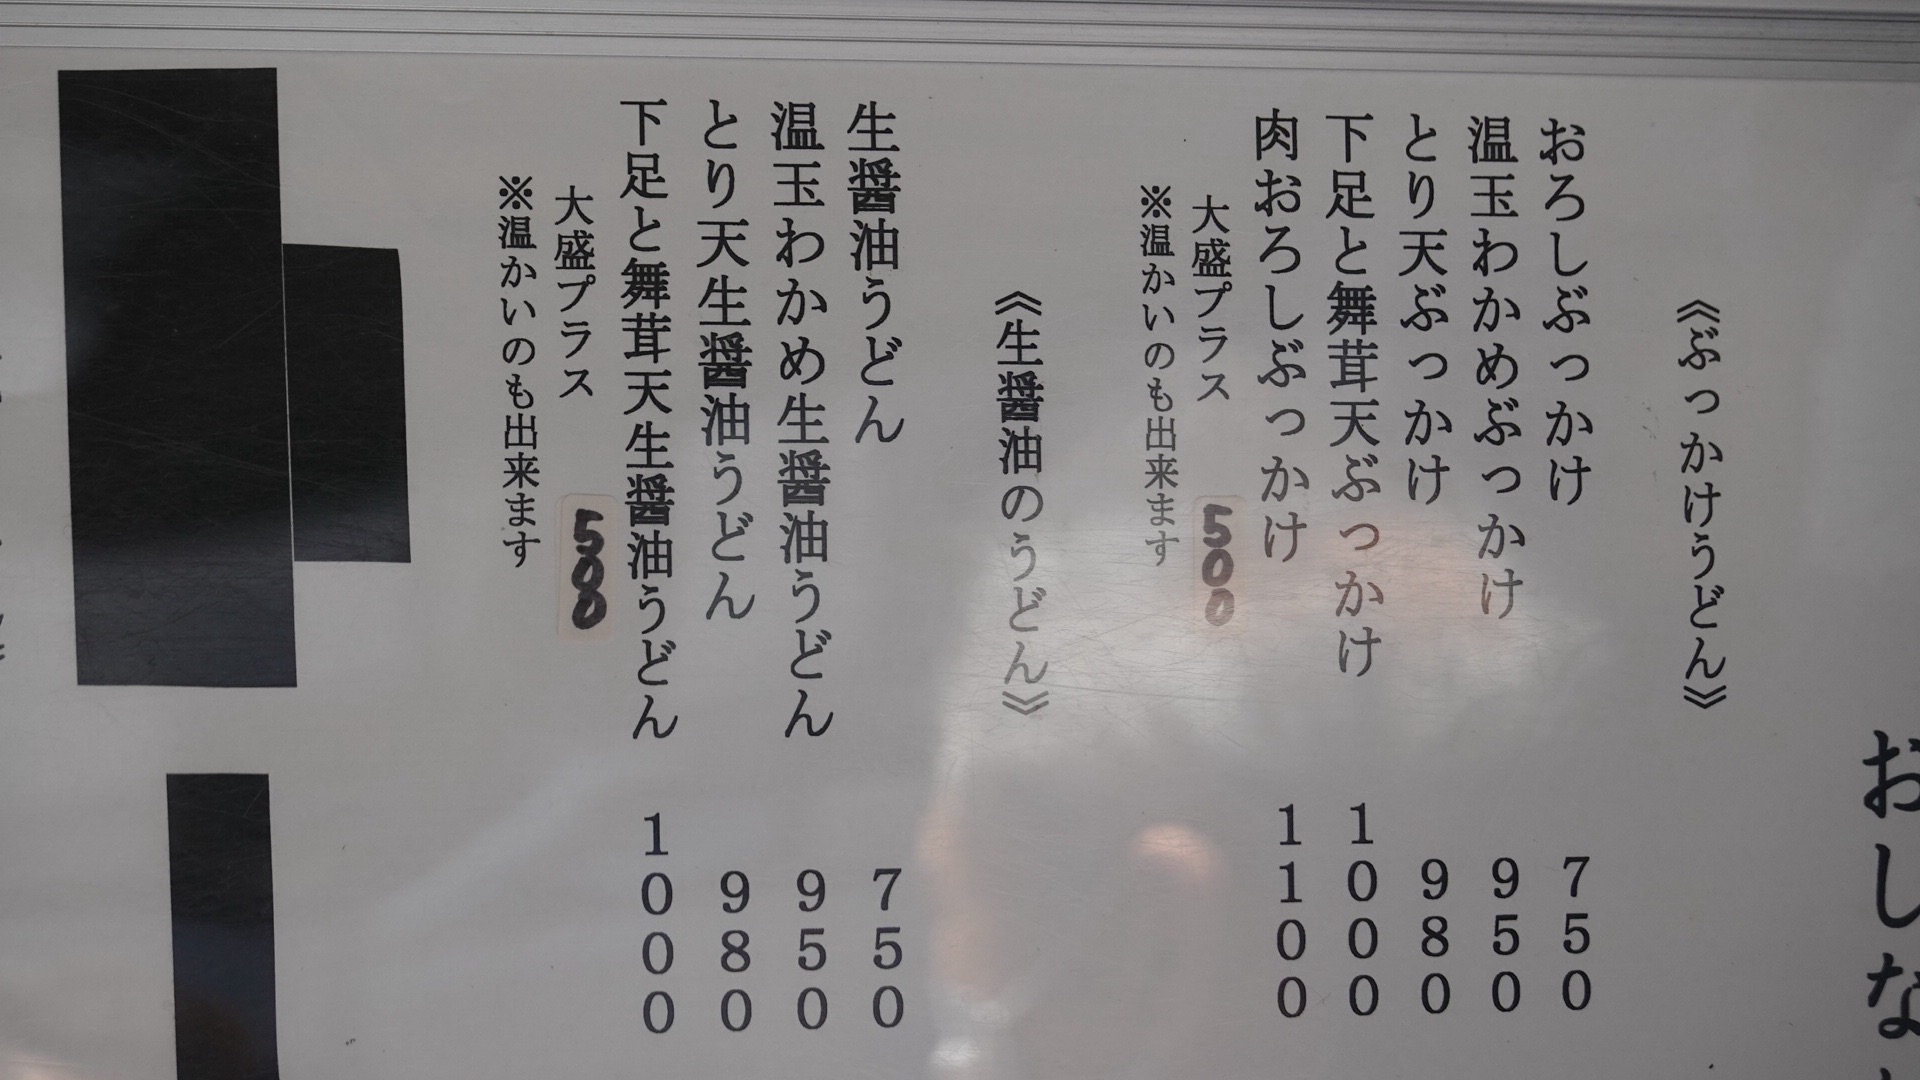 おしな
《ぶっかけうどん》
おろしぶっかけ 750
温玉わかめぶっかけ 950
とり天ぶっかけ 980
下足と舞茸天ぶっかけ 1000
肉おろしぶっかけ 1100
大盛プラス 500
※温かいのも出来ます
《生醤油のうどん》
生醤油うどん 750
温玉わかめ生醤油うどん 950
とり天生醤油うどん 980
下足と舞茸天生醤油うどん 1000
大盛プラス 500
※温かいのも出来ます